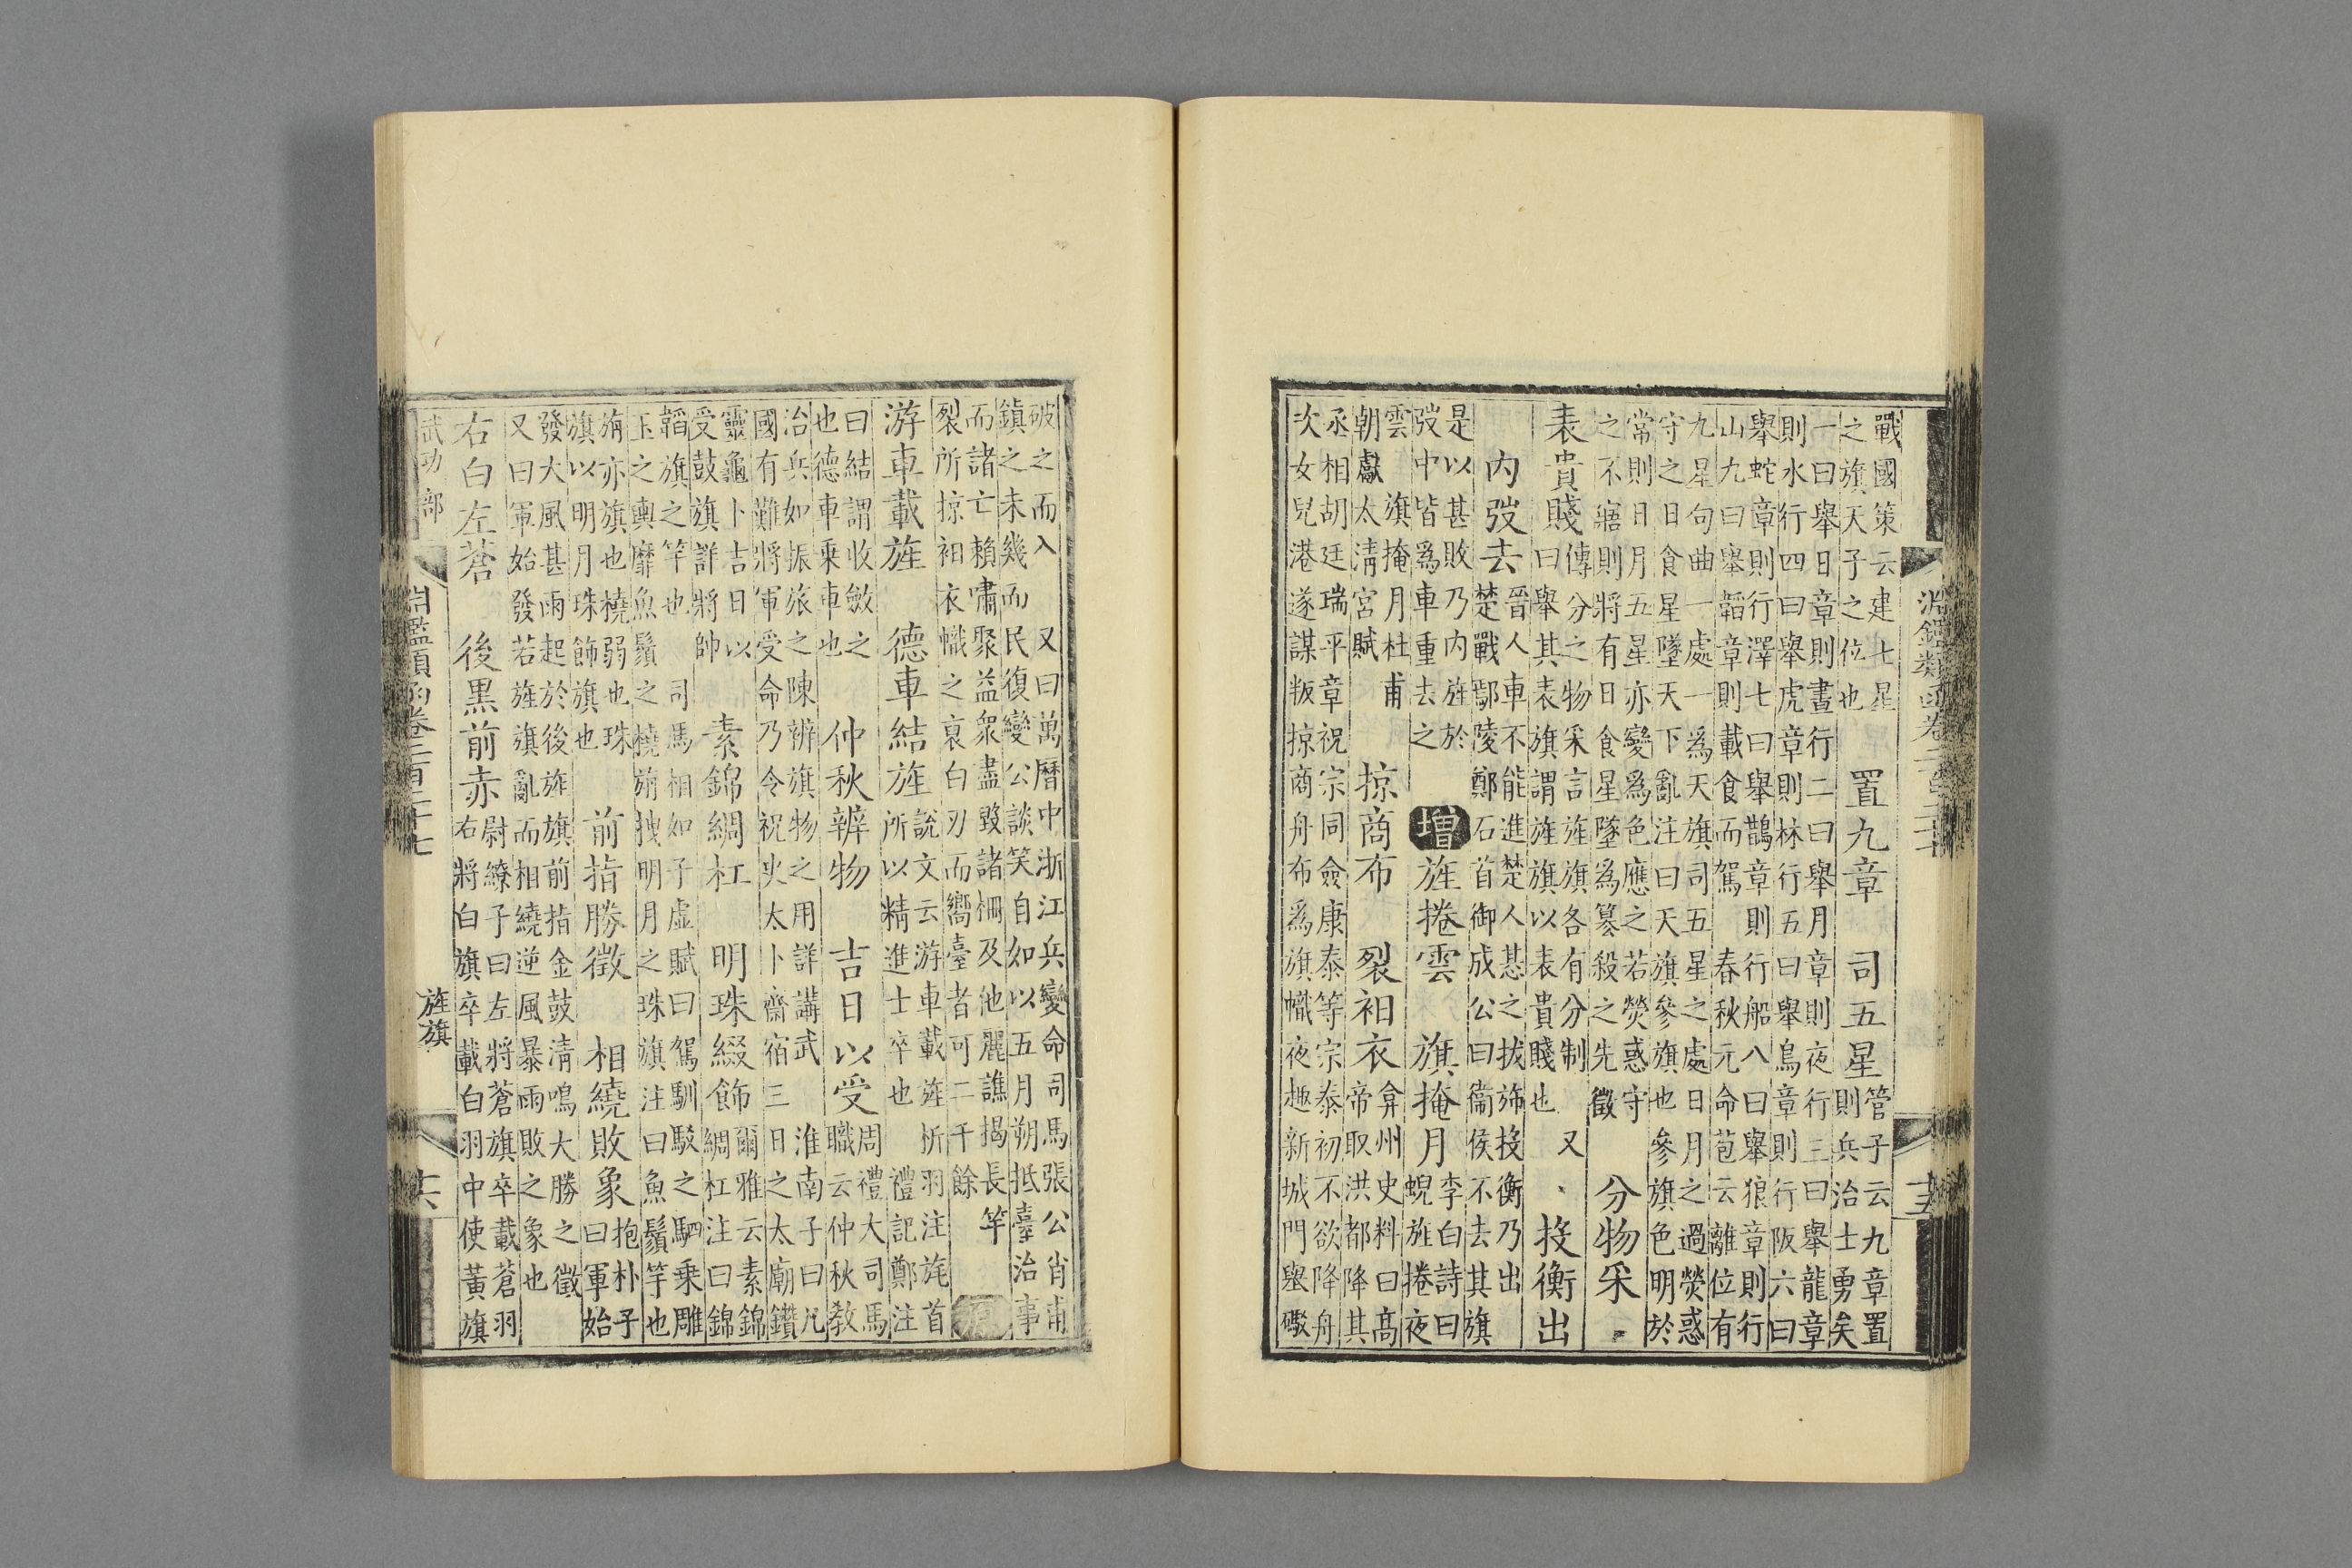 淵鑑類函卷二百二十七
戰國策云建七星
之旗天子之位也
置九章　司五星
管子云九章置
則兵治士勇矣
一曰舉日章則晝行二曰舉月章則夜行三曰舉龍章
則水行四曰舉虎章則林行五曰舉鳥章則行阪六曰
舉蛇章則行澤七曰舉鵲章則行船八曰舉狼章則行
山九曰舉韜章則載食而駕　春秋元命苞云離位有
九星句曲一處一爲天旗司五星之處日月之過熒惑
守之日食星墜天下亂注曰天旗參旗也參旗色明於
常則日月五星亦變爲色應之若熒惑守
之不寤則將有日食星墜爲簒殺之先徵
分物采
表貴賤
傳分之物采言旌旗各有分制　又
曰舉其表旗謂旌旗以表貴賤也
投衡出
內弢去
晉人車不能進楚人惎之拔斾投衡乃出
楚戰鄢陵鄭石首御成公曰衞侯不去其旗
是以甚敗乃內旌於
弢中皆爲車重去之
增　旌捲雲　旗掩月
李白詩曰
蜺旌捲夜
雲　旗掩月杜甫
朝獻太淸宮賦
掠商布　裂衵衣
弇州史料曰髙
帝取洪都降其
丞相胡廷瑞平章祝宗同僉康泰等宗泰初不欲降舟
次女兒港遂謀叛掠商舟布爲旗幟夜趣新城門舉礮
破之而入　又曰萬曆中浙江兵變命司馬張公肖甫
鎮之未幾而民復變公談笑自如以五月朔抵臺治事
而諸亡賴嘯聚益衆盡毀諸柵及他麗譙揭長竿
裂所掠衵衣幟之裒白刃而嚮臺者可二千餘
原
游車載旌　德車結旌
說文云游車載旌析羽注旄首
所以精進士卒也　禮記鄭注
曰結謂收斂之
也德車乘車也
仲秋辨物　吉日以受
周禮大司馬
職云仲秋敎
治兵如振旅之陳辨旗物之用詳講武　淮南子曰凡
國有難將軍受命乃令祝史太卜齋宿三日之太廟鑽
靈龜卜吉日以
受鼓旗詳將帥
素錦綢杠　明珠綴飾
爾雅云素錦
綢杠注曰錦
韜旗之竿也　司馬相如子虛賦曰駕馴駁之駟乘雕
玉之輿靡魚鬚之橈旃拽明月之珠旗注曰魚鬚竿也
旃亦旗也橈弱也珠
旗以明月珠飾旗也
前指勝徵　相繞敗象
抱朴子
曰軍始
發大風甚雨起於後旌旗前指金鼓淸鳴大勝之徵
又曰軍始發若旌旗亂而相繞逆風暴雨敗之象也
右白左蒼　後黒前赤
尉繚子曰左將蒼旗卒載蒼羽
右將白旗卒載白羽中使黃旗
武功部　淵鑑類函卷二百二十七　旌旗　十六